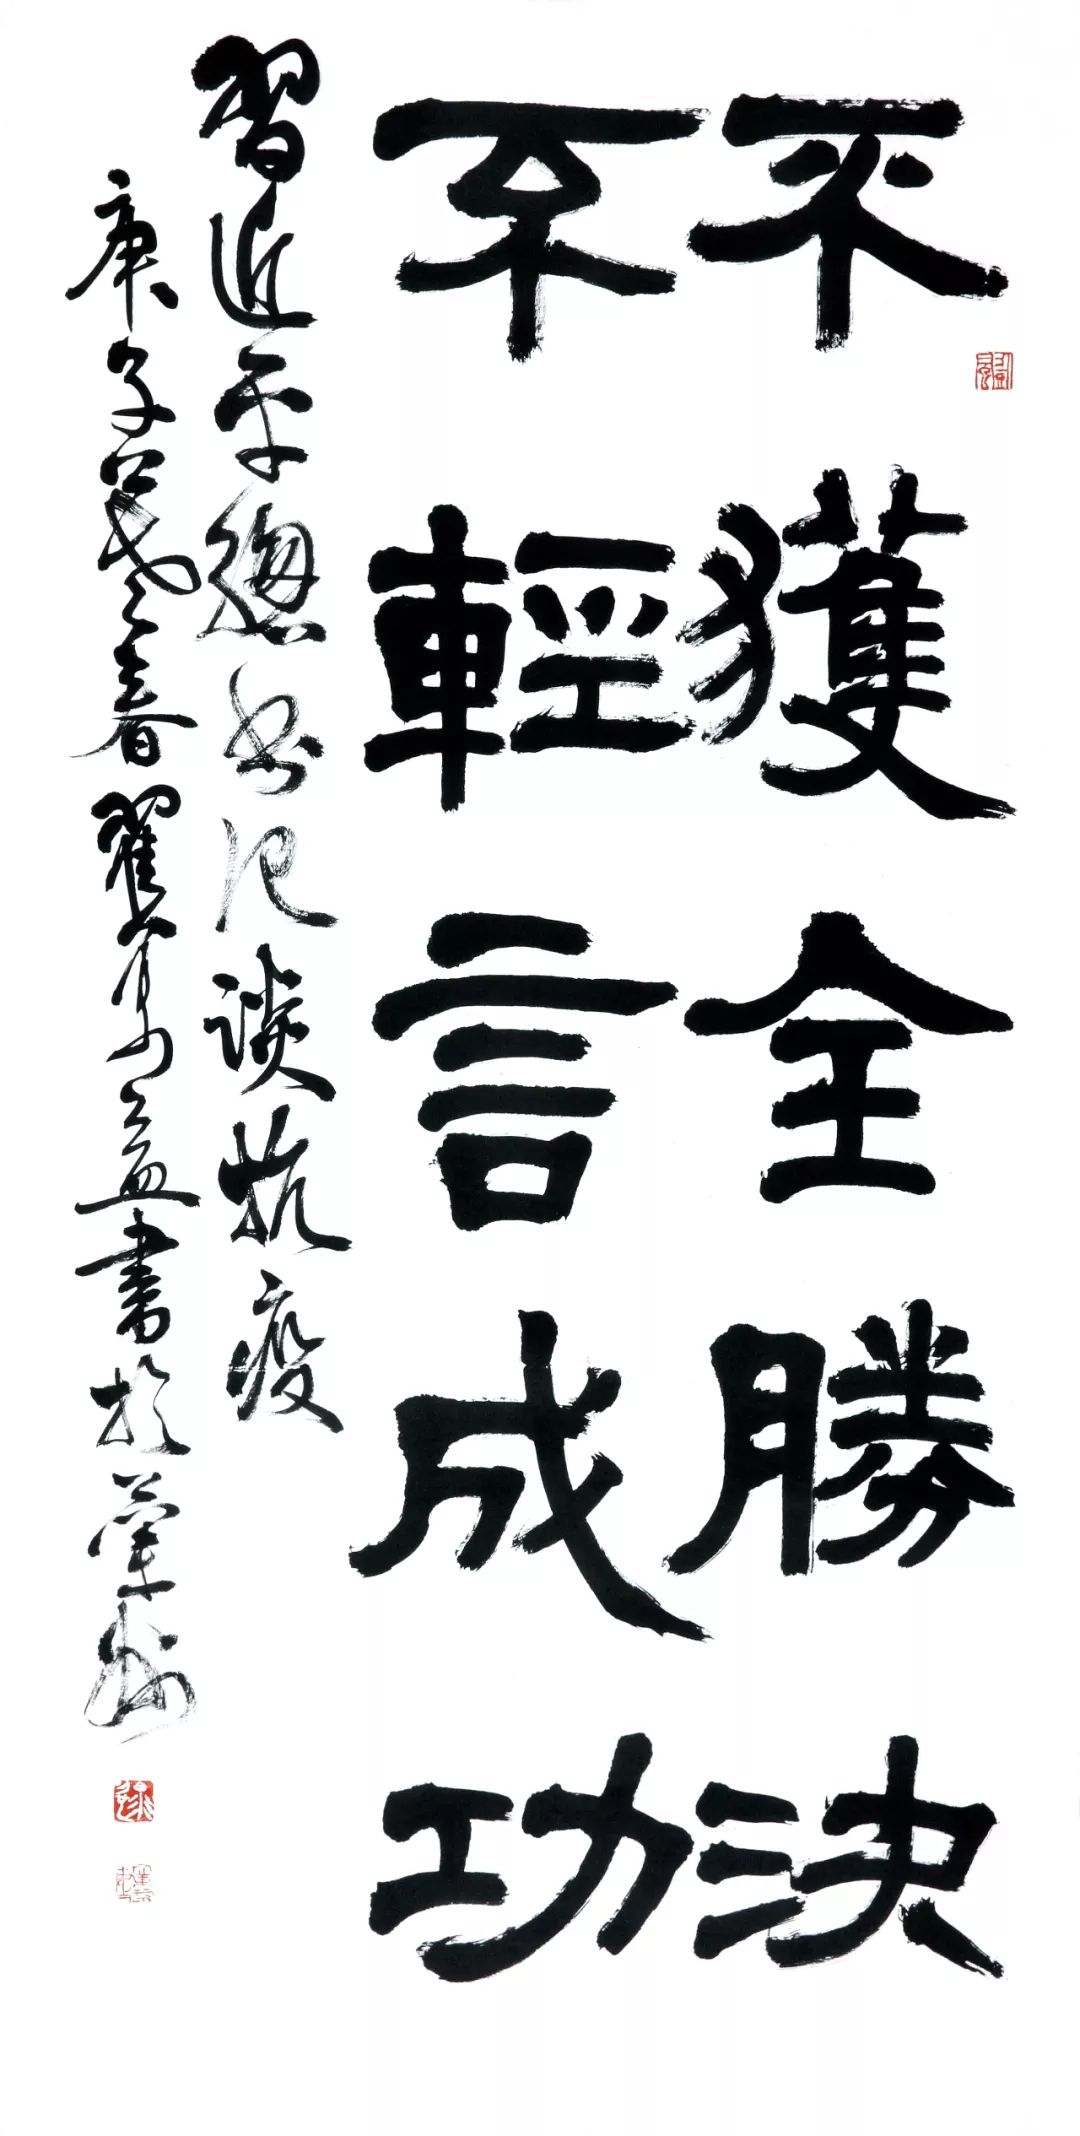 不獲全勝決
不輕言成功
習近平總書記談抗疫
庚子暮春翟萬益書於蘭州